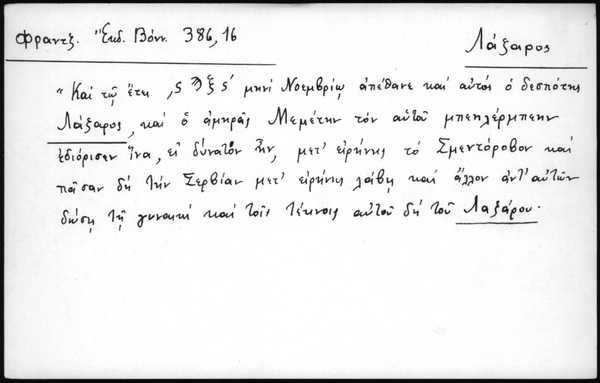 Φραντζ. Ἔκδ. Βόνν. 386,16
Λάζαρος
"Καὶ τῷ ἔτει ,ςϠξς' μηνὶ Νοεμβρίῳ ἀπέθανε καὶ αὐτὸς ὁ δεσπότης
Λάζαρος, καὶ ὁ ἀμηρᾶς Μεμέτην τὸν αὐτοῦ μπεηλέρμπεην
ἐδιόρισεν ἵνα, εἰ δυνατὸν ἦν, μετ' εἰρήνης τὸ Σμεντόροβον καὶ
πᾶσαν δὴ τὴν Σερβίαν μετ' εἰρήνης λάβῃ καὶ ἄλλον ἀντ' αὐτῶν
δώσῃ τῇ γυναικὶ καὶ τοῖς τέκνοις αὐτοῦ δὴ τοῦ Λαζάρου.